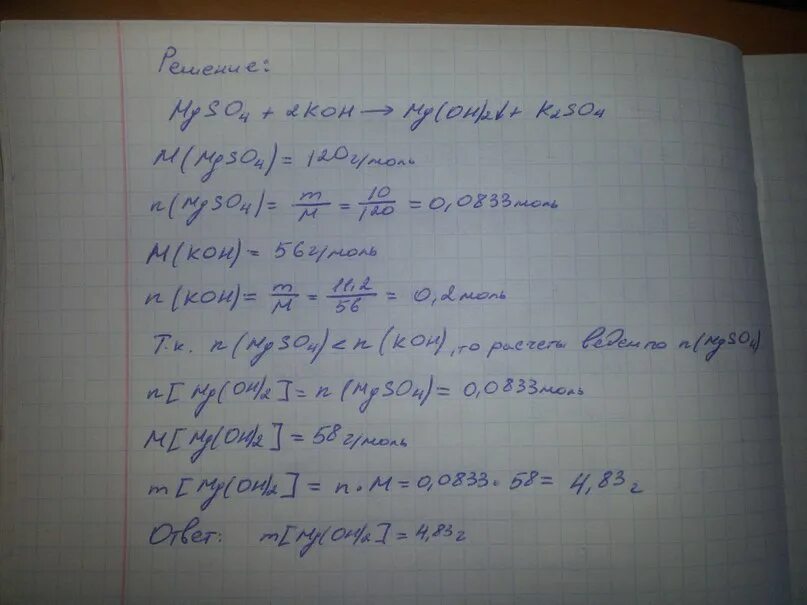 Решение:
MgSO₄ + 2KOH → Mg(OH)₂↓ + K₂SO₄
M(MgSO₄) = 120 г/моль
n(MgSO₄) = m/M = 10/120 = 0,0833 моль
M(KOH) = 56 г/моль
n(KOH) = m/M = 11,2/56 = 0,2 моль
Т.к. n(MgSO₄) < n(KOH), то расчеты ведем по n(MgSO₄)
n[Mg(OH)₂] = n(MgSO₄) = 0,0833 моль
M[Mg(OH)₂] = 58 г/моль
m[Mg(OH)₂] = n · M = 0,0833 · 58 = 4,83 г
Ответ: m[Mg(OH)₂] = 4,83 г